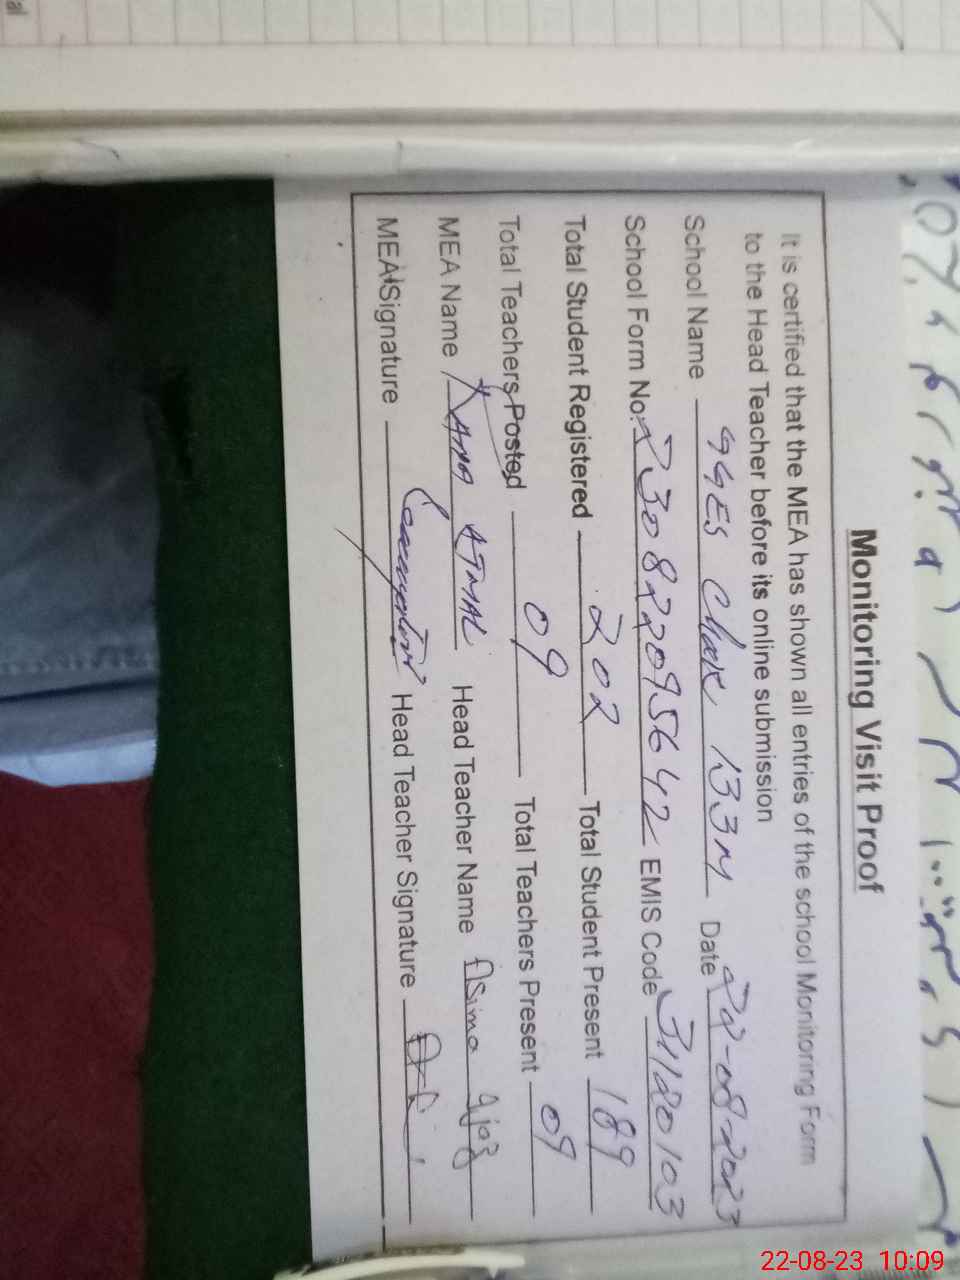 Monitoring Visit Proof
It is certified that the MEA has shown all entries of the school Monitoring Form
to the Head Teacher before its online submission
School Name GGES Chak 133M Date 22-08-2023
School Form No. 230822095642 EMIS Code 31120103
Total Student Registered 202 Total Student Present 189
Total Teachers Posted 09 Total Teachers Present 09
MEA Name RANA AJMAL Head Teacher Name Asima Ijaz
MEA Signature Head Teacher Signature
22-08-23 10:09